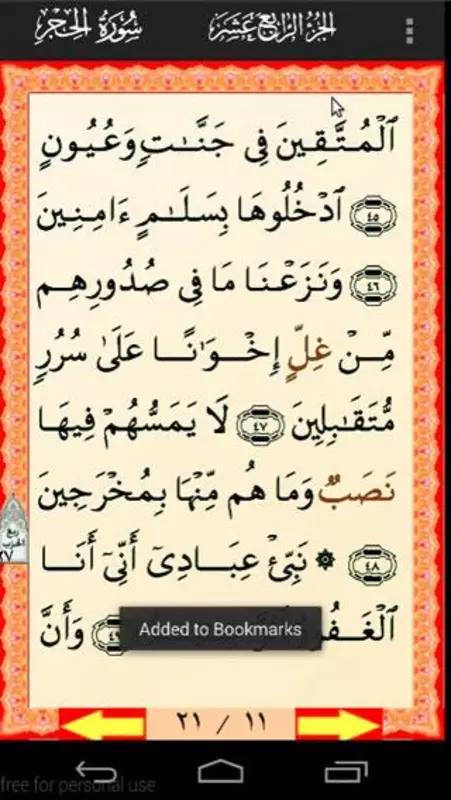 سُورَةُ الحِجْرِ
الجُزْءُ الرَّابِعُ عَشَرَ
ٱلْمُتَّقِينَ فِى جَنَّـٰتٍ وَعُيُونٍ
٤٥ ٱدْخُلُوهَا بِسَلَـٰمٍ ءَامِنِينَ
٤٦ وَنَزَعْنَا مَا فِى صُدُورِهِم
مِّنْ غِلٍّ إِخْوَٰنًا عَلَىٰ سُرُرٍ
مُّتَقَـٰبِلِينَ ٤٧ لَا يَمَسُّهُمْ فِيهَا
نَصَبٌ وَمَا هُم مِّنْهَا بِمُخْرَجِينَ
٤٨ ۞ نَبِّئْ عِبَادِىٓ أَنِّىٓ أَنَا
وَأَنَّ
ربع
الحزب
٢٧
Added to Bookmarks
٢١ / ١١
free for personal use